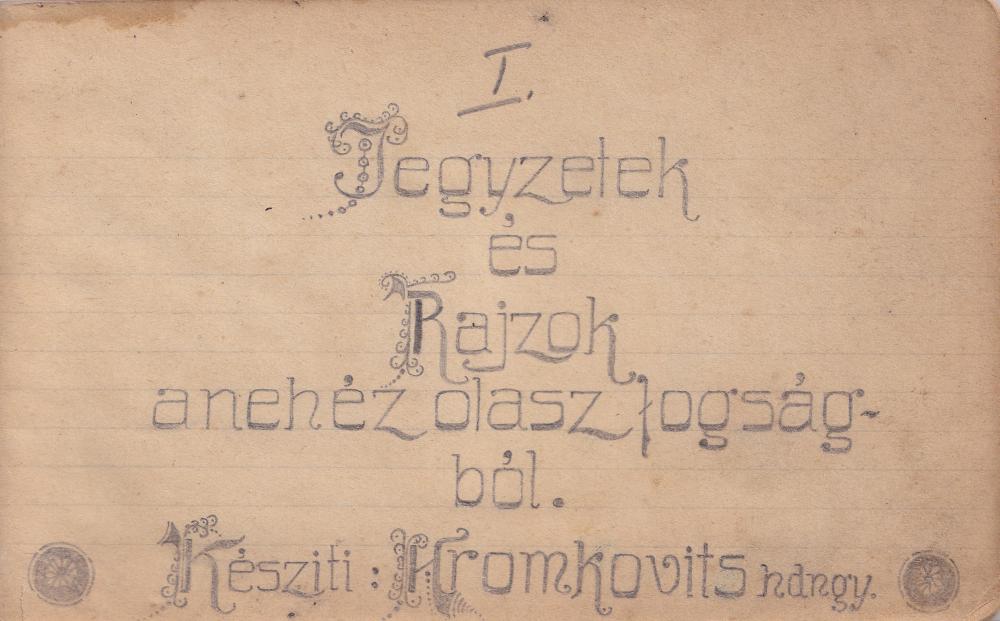 I.
Jegyzetek
és
Rajzok
a nehéz olasz fogság-
ból.
Késziti: Hromkovits hdngy.